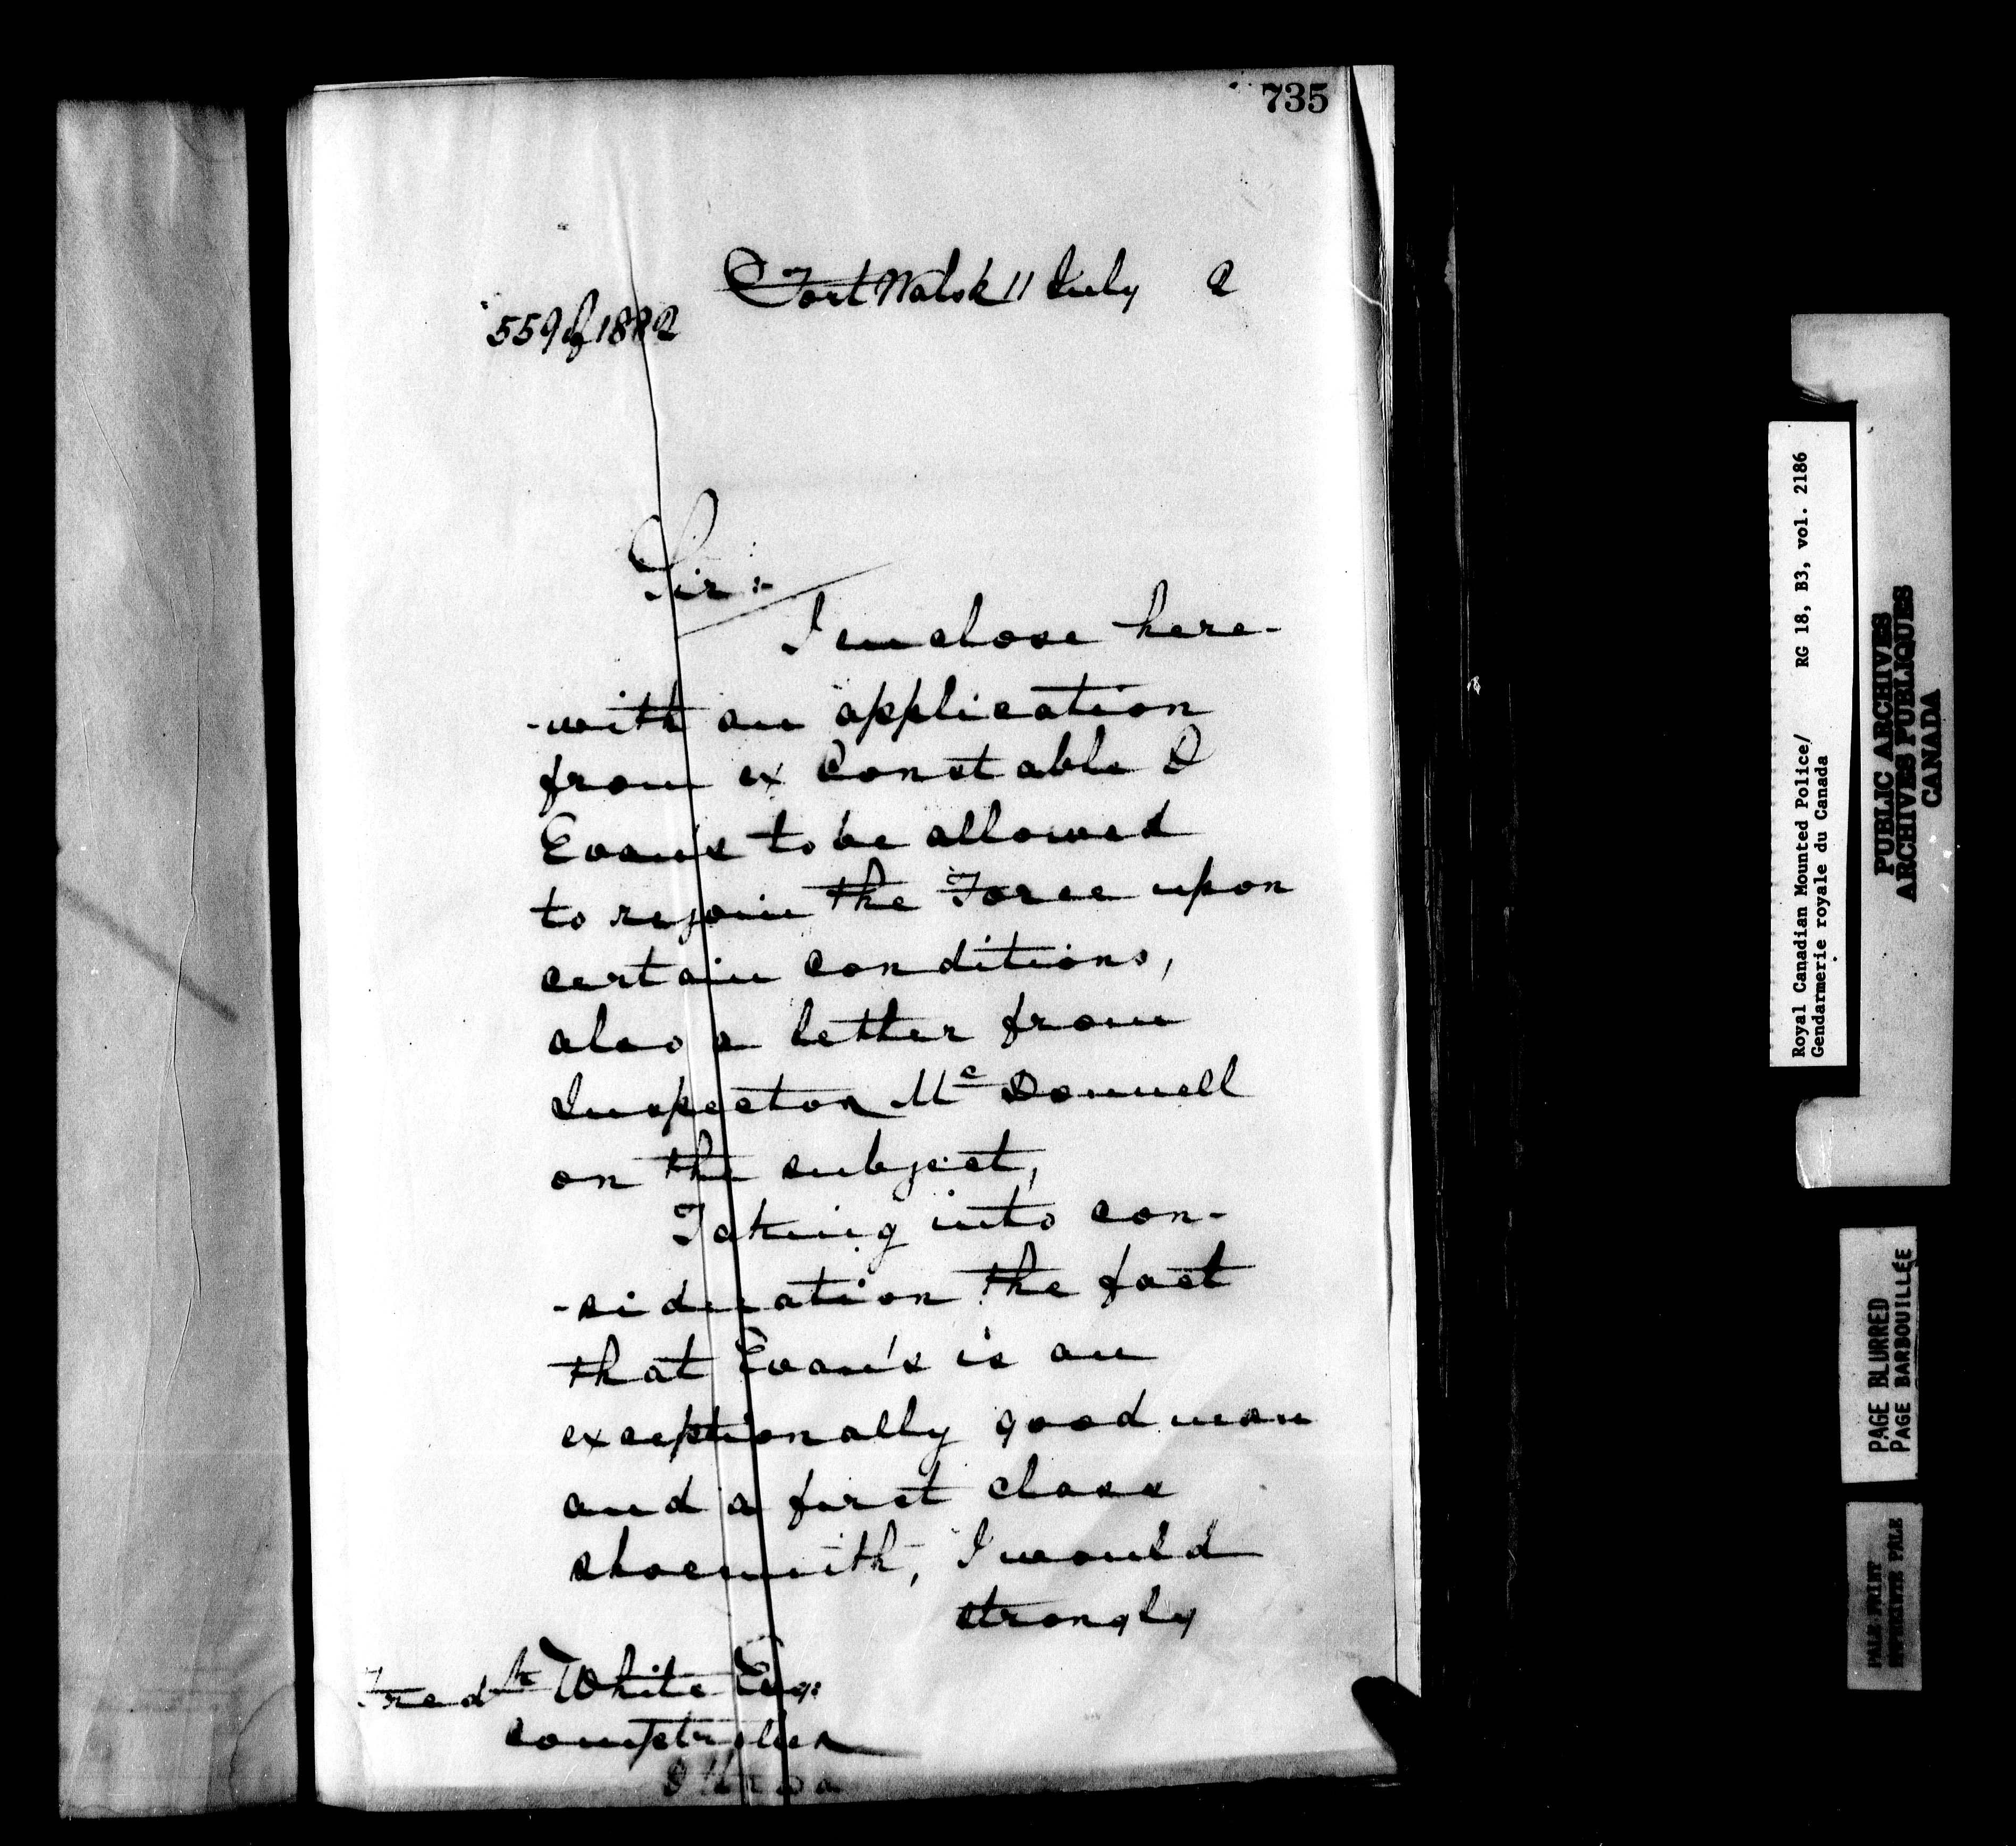 735
Fort Walsh 11 July 2
559 of 1882
Sir:-
I enclose here-
-with an application
from ex Constable D
Evans to be allowed
to rejoin the Force upon
certain conditions,
also a letter from
Inspector Mc Donnell
on the subject,
Taking into con-
-sideration the fact
that Evans is an
exceptionally good man
and a first class
shoesmith, I would
strongly
Fredk White Esq:
Comptroller
Ottawa
Royal Canadian Mounted Police/ RG 18, B3, vol. 2186
Gendarmerie royale du Canada
PUBLIC ARCHIVES
ARCHIVES PUBLIQUES
CANADA
PAGE BLURRED
PAGE BARBOUILLÉE
PALE PRINT